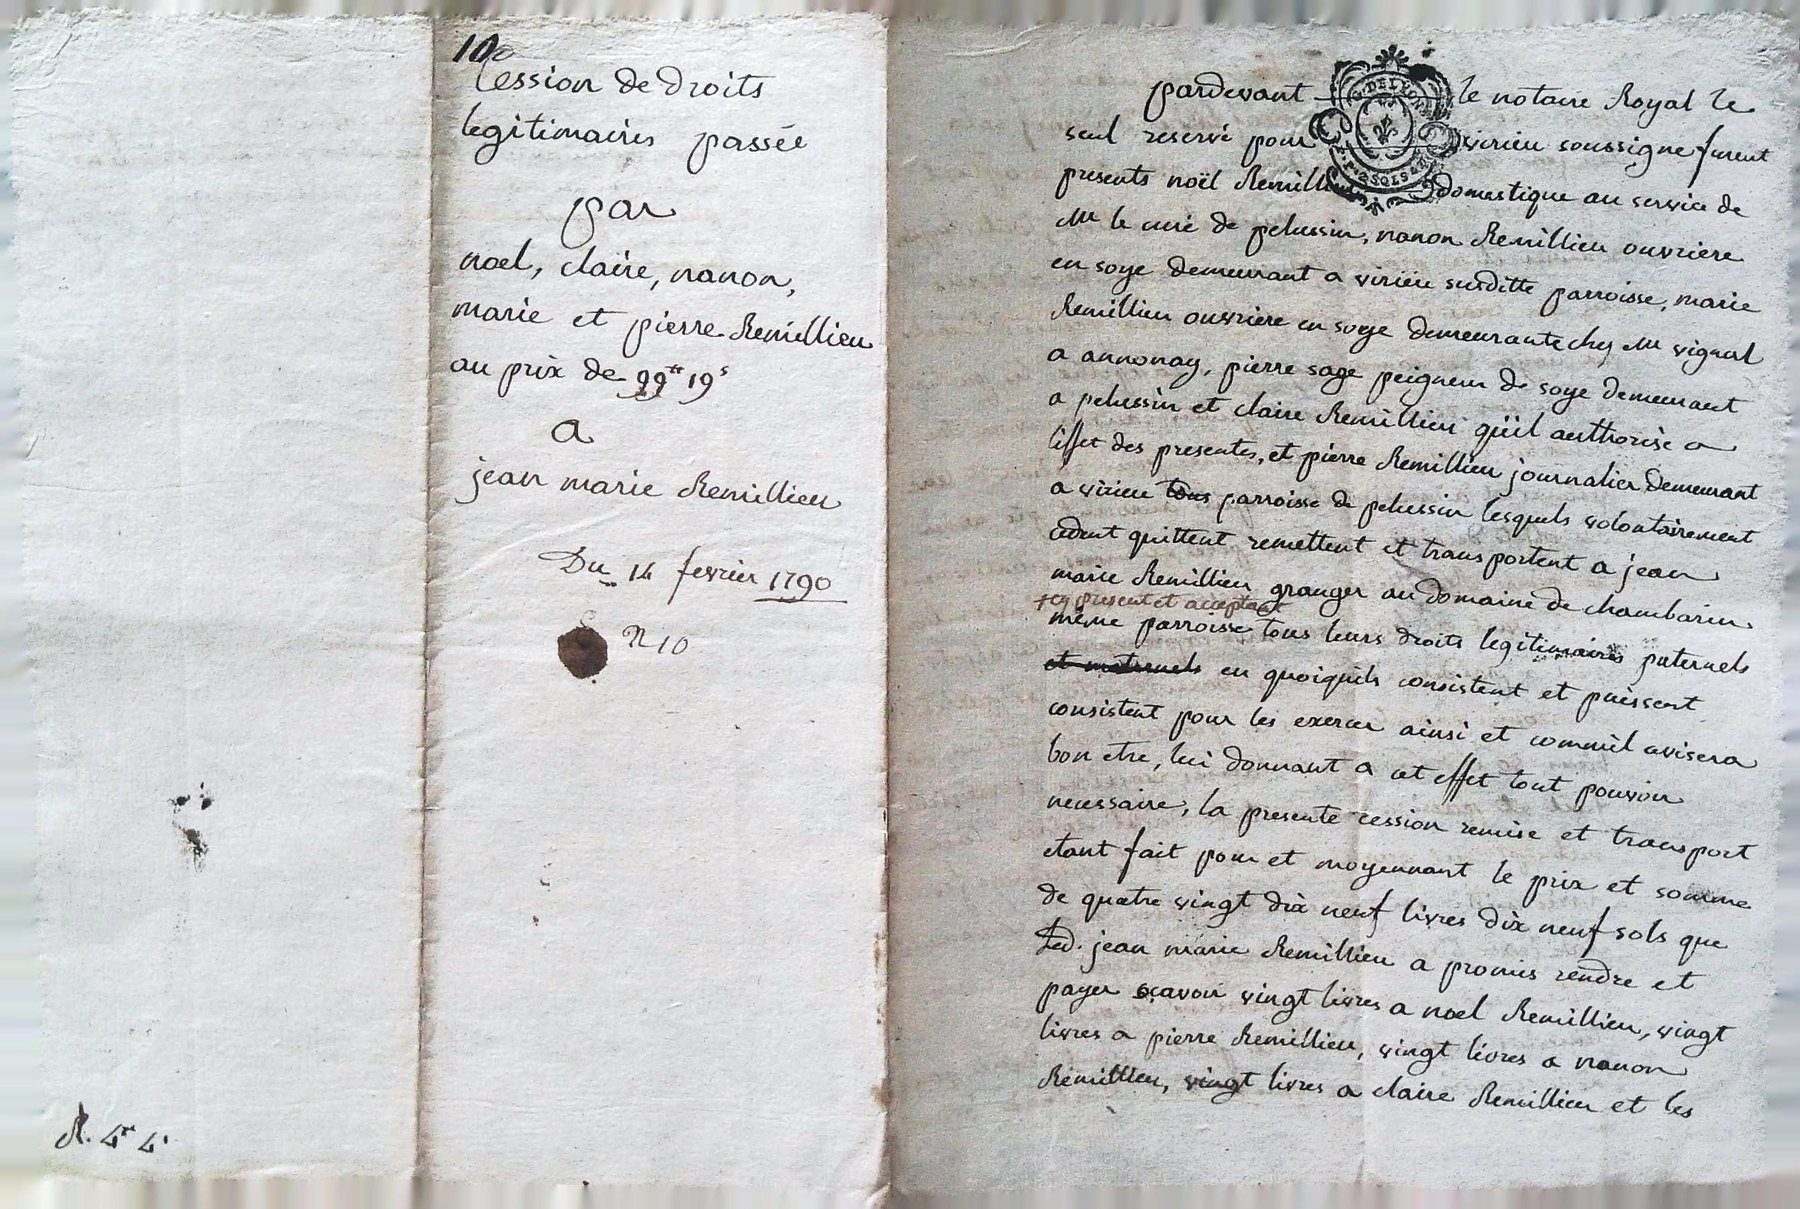 10
Cession de droits
legitimaires passée
par
noel, claire, nanon,
marie et pierre Remillieu
au prix de 99tt 19s
a
jean marie Remillieu
Du 14 fevrier 1790
N 10
R. 4tt 4s
pardevant le notaire Royal le
seul reservé pour virieu soussigne furent
presents noël Remillieu domestique au service de
Mr le curé de pelussin, nanon Remillieu ouvriere
en soye demeurant a virieu susditte parroisse, marie
Remillieu ouvriere en soye demeurante chez Mr vignal
a annonay, pierre sage peigneur de soye demeurant
a pelussin et claire Remillieu qu'il authorise a
l'effet des presentes, et pierre Remillieu journalier demeurant
a virieu tous parroisse de pelussin lesquels volontairement
cedent quittent remettent et transportent a jean
marie Remillieu granger au domaine de chambarin
+ cy present et acceptant
même parroisse tous leurs droits legitimaires paternels
et maternels en quoiquils consistent et puissent
consistent pour les exercer ainsi et commil avisera
bon etre, lui donnant a cet effet tout pouvoir
necessaire, la presente cession remise et transport
etant fait pour et moyennant le prix et somme
de quatre vingt dix neuf livres dix neuf sols que
led. jean marie Remillieu a promis rendre et
payer sçavoir vingt livres a noel Remillieu, vingt
livres a pierre Remillieu, vingt livres a nanon
Remillieu, vingt livres a claire Remillieu et les